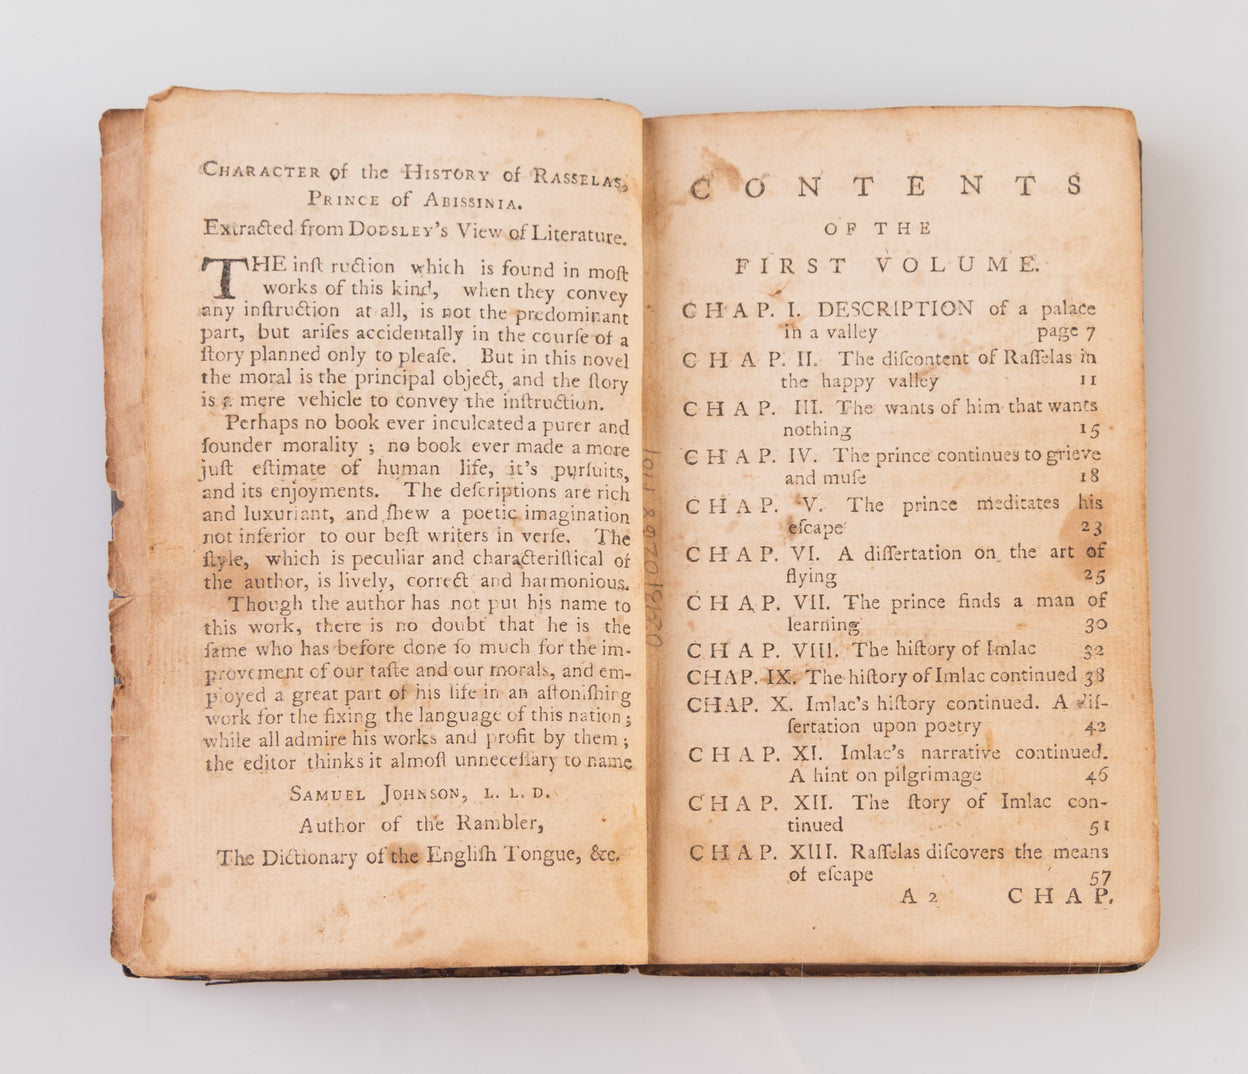 CHARACTER of the HISTORY of RASSELAS,
PRINCE of ABISSINIA.
Extracted from DODSLEY's View of Literature.
THE inſt ruction which is found in moſt
works of this kind, when they convey
any inſtruction at all, is not the predominant
part, but ariſes accidentally in the courſe of a
ſtory planned only to pleaſe. But in this novel
the moral is the principal object, and the ſtory
is a mere vehicle to convey the inſtruction.
Perhaps no book ever inculcated a purer and
ſounder morality ; no book ever made a more
juſt eſtimate of human life, it's purſuits,
and its enjoyments. The deſcriptions are rich
and luxuriant, and ſhew a poetic imagination
not inferior to our beſt writers in verſe. The
ſtyle, which is peculiar and characteriſtical of
the author, is lively, correct and harmonious.
Though the author has not put his name to
this work, there is no doubt that he is the
ſame who has before done ſo much for the im-
provement of our taſte and our morals, and em-
ployed a great part of his life in an aſtoniſhing
work for the fixing the language of this nation ;
while all admire his works and profit by them ;
the editor thinks it almoſt unneceſſary to name
SAMUEL JOHNSON, L. L. D.
Author of the Rambler,
The Dictionary of the Engliſh Tongue, &c.
CONTENTS
OF THE
FIRST VOLUME.
CHAP. I. DESCRIPTION of a palace
in a valley page 7
CHAP. II. The diſcontent of Raſſelas in
the happy valley 11
CHAP. III. The wants of him that wants
nothing 15
CHAP. IV. The prince continues to grieve
and muſe 18
CHAP. V. The prince meditates his
eſcape 23
CHAP. VI. A diſſertation on the art of
flying 25
CHAP. VII. The prince finds a man of
learning 30
CHAP. VIII. The hiſtory of Imlac 32
CHAP. IX. The hiſtory of Imlac continued 38
CHAP. X. Imlac's hiſtory continued. A diſ-
ſertation upon poetry 42
CHAP. XI. Imlac's narrative continued.
A hint on pilgrimage 46
CHAP. XII. The ſtory of Imlac con-
tinued 51
CHAP. XIII. Raſſelas diſcovers the means
of eſcape 57
A 2 CHAP.